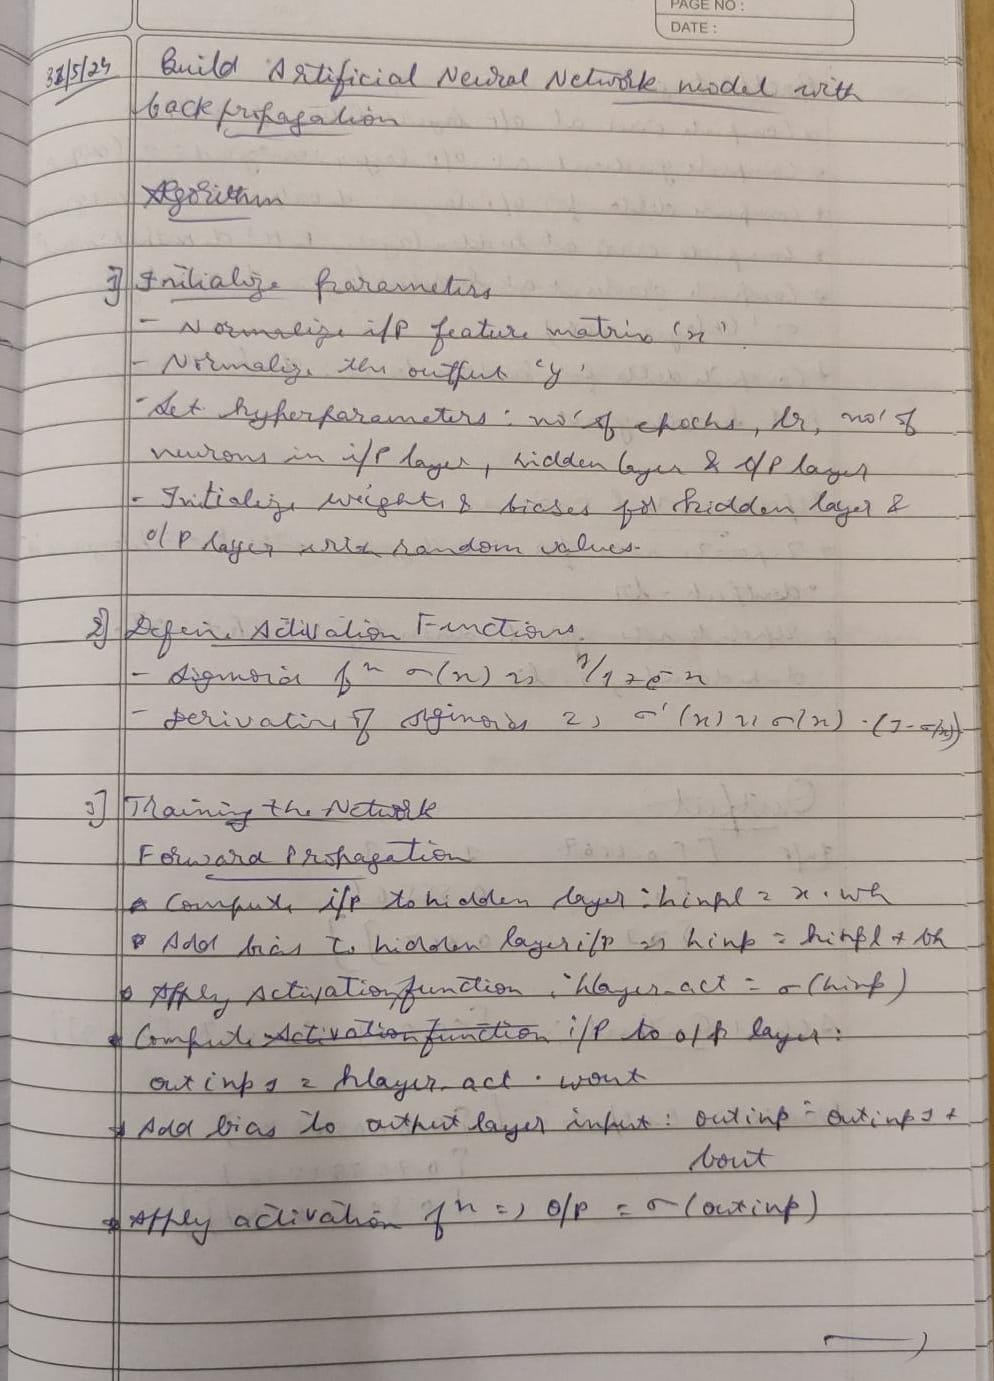 PAGE NO :
DATE :
31/5/24 Build Artificial Neural Network model with
backpropagation
Algorithm
1] Initialize parameters
- Normalize i/p feature matrix 'x'
- Normalize the output 'y'
- Set hyperparameters : no' of epochs, lr, no' of
neurons in i/P layer, hidden layer & o/P layer
- Initialize weights & biases for hidden layer &
o/P layer with random values.
2] Define Activation Functions.
- Sigmoid fn σ(x) = 1/1+e-x
- Derivative of sigmoid => σ'(x) = σ(x) . (1-σ(x))
3] Training the Network
Forward Propagation
Compute i/p to hidden layer : hinp1 = x . wh
Add bias to hidden layer i/p => hinp = hinp1 + bh
Apply Activation function : hlayer_act = σ(hinp)
Compute Activation function i/P to o/p layer :
outinp1 = hlayer_act . wout
Add bias to output layer input : outinp = outinp1 +
bout
Apply activation fn => o/p = σ(outinp)